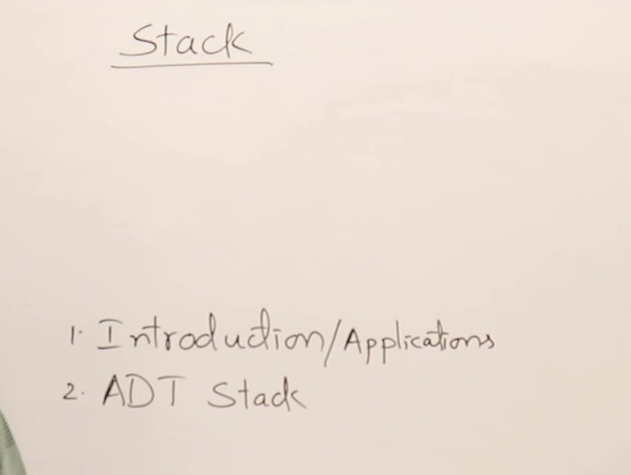 Stack
1. Introduction/Applications
2. ADT Stack